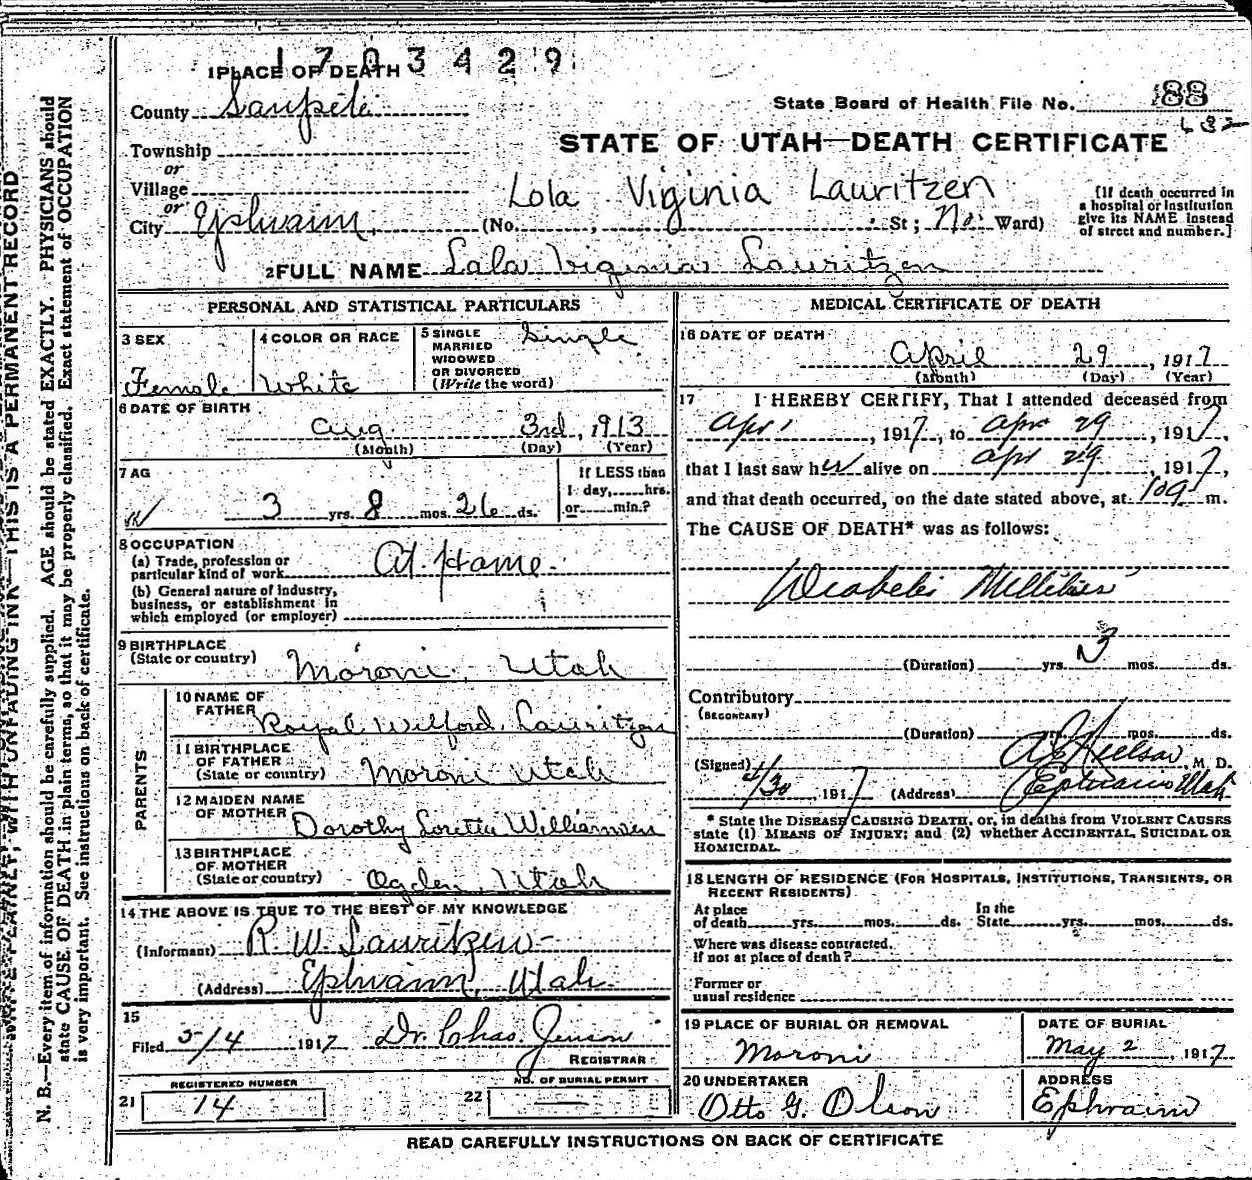 1703429
1 PLACE OF DEATH
County Sanpete
State Board of Health File No. 188
632
Township
or
STATE OF UTAH—DEATH CERTIFICATE
Village
or
Lola Viginia Lauritzen
City Ephraim, (No. , St; No. Ward)
[If death occurred in a hospital or institution give its NAME instead of street and number.]
2 FULL NAME Lola Viginia Lauritzen
PERSONAL AND STATISTICAL PARTICULARS
3 SEX
Female
4 COLOR OR RACE
White
5 SINGLE
MARRIED
WIDOWED
OR DIVORCED
(Write the word)
Single
6 DATE OF BIRTH
Aug. 3rd, 1913
(Month) (Day) (Year)
7 AG
3 yrs. 8 mos. 26 ds.
If LESS than
1 day, hrs.
or min.?
8 OCCUPATION
(a) Trade, profession or
particular kind of work At Home.
(b) General nature of industry,
business, or establishment in
which employed (or employer)
9 BIRTHPLACE
(State or country) Moroni, Utah
PARENTS
10 NAME OF
FATHER Royal Wilford Lauritzen
11 BIRTHPLACE
OF FATHER
(State or country) Moroni Utah
12 MAIDEN NAME
OF MOTHER Dorothy Loretta Williamsen
13 BIRTHPLACE
OF MOTHER
(State or country) Ogden, Utah
14 THE ABOVE IS TRUE TO THE BEST OF MY KNOWLEDGE
(Informant) R. W. Lauritzen
(Address) Ephraim, Utah
15
Filed 5/4 1917 Dr. Chas Jensen
REGISTRAR
21 REGISTERED NUMBER
14
22 NO. OF BURIAL PERMIT
—
MEDICAL CERTIFICATE OF DEATH
16 DATE OF DEATH
April 29, 1917
(Month) (Day) (Year)
17 I HEREBY CERTIFY, That I attended deceased from
Apr 1, 1917, to Apr 29, 1917,
that I last saw her alive on Apr 29, 1917,
and that death occurred, on the date stated above, at m.
The CAUSE OF DEATH* was as follows:
Diabetis Mellitus
(Duration) yrs. 3 mos. ds.
Contributory
(SECONDARY)
(Duration) yrs. mos. ds.
(Signed) Nielson, M. D.
4/30, 1917 (Address) Ephraim Utah
* State the DISEASE CAUSING DEATH, or, in deaths from VIOLENT CAUSES
state (1) MEANS OF INJURY; and (2) whether ACCIDENTAL, SUICIDAL OR
HOMICIDAL.
18 LENGTH OF RESIDENCE (FOR HOSPITALS, INSTITUTIONS, TRANSIENTS, OR
RECENT RESIDENTS)
At place In the
of death yrs. mos. ds. State yrs. mos. ds.
Where was disease contracted.
if not at place of death?
Former or
usual residence
19 PLACE OF BURIAL OR REMOVAL
Moroni
DATE OF BURIAL
May 2, 1917
20 UNDERTAKER
Otto G. Olson
ADDRESS
Ephraim
READ CAREFULLY INSTRUCTIONS ON BACK OF CERTIFICATE
WRITE PLAINLY, WITH UNFADING INK—THIS IS A PERMANENT RECORD
N. B.—Every item of information should be carefully supplied. AGE should be stated EXACTLY. PHYSICIANS should
state CAUSE OF DEATH in plain terms, so that it may be properly classified. Exact statement of OCCUPATION
is very important. See instructions on back of certificate.